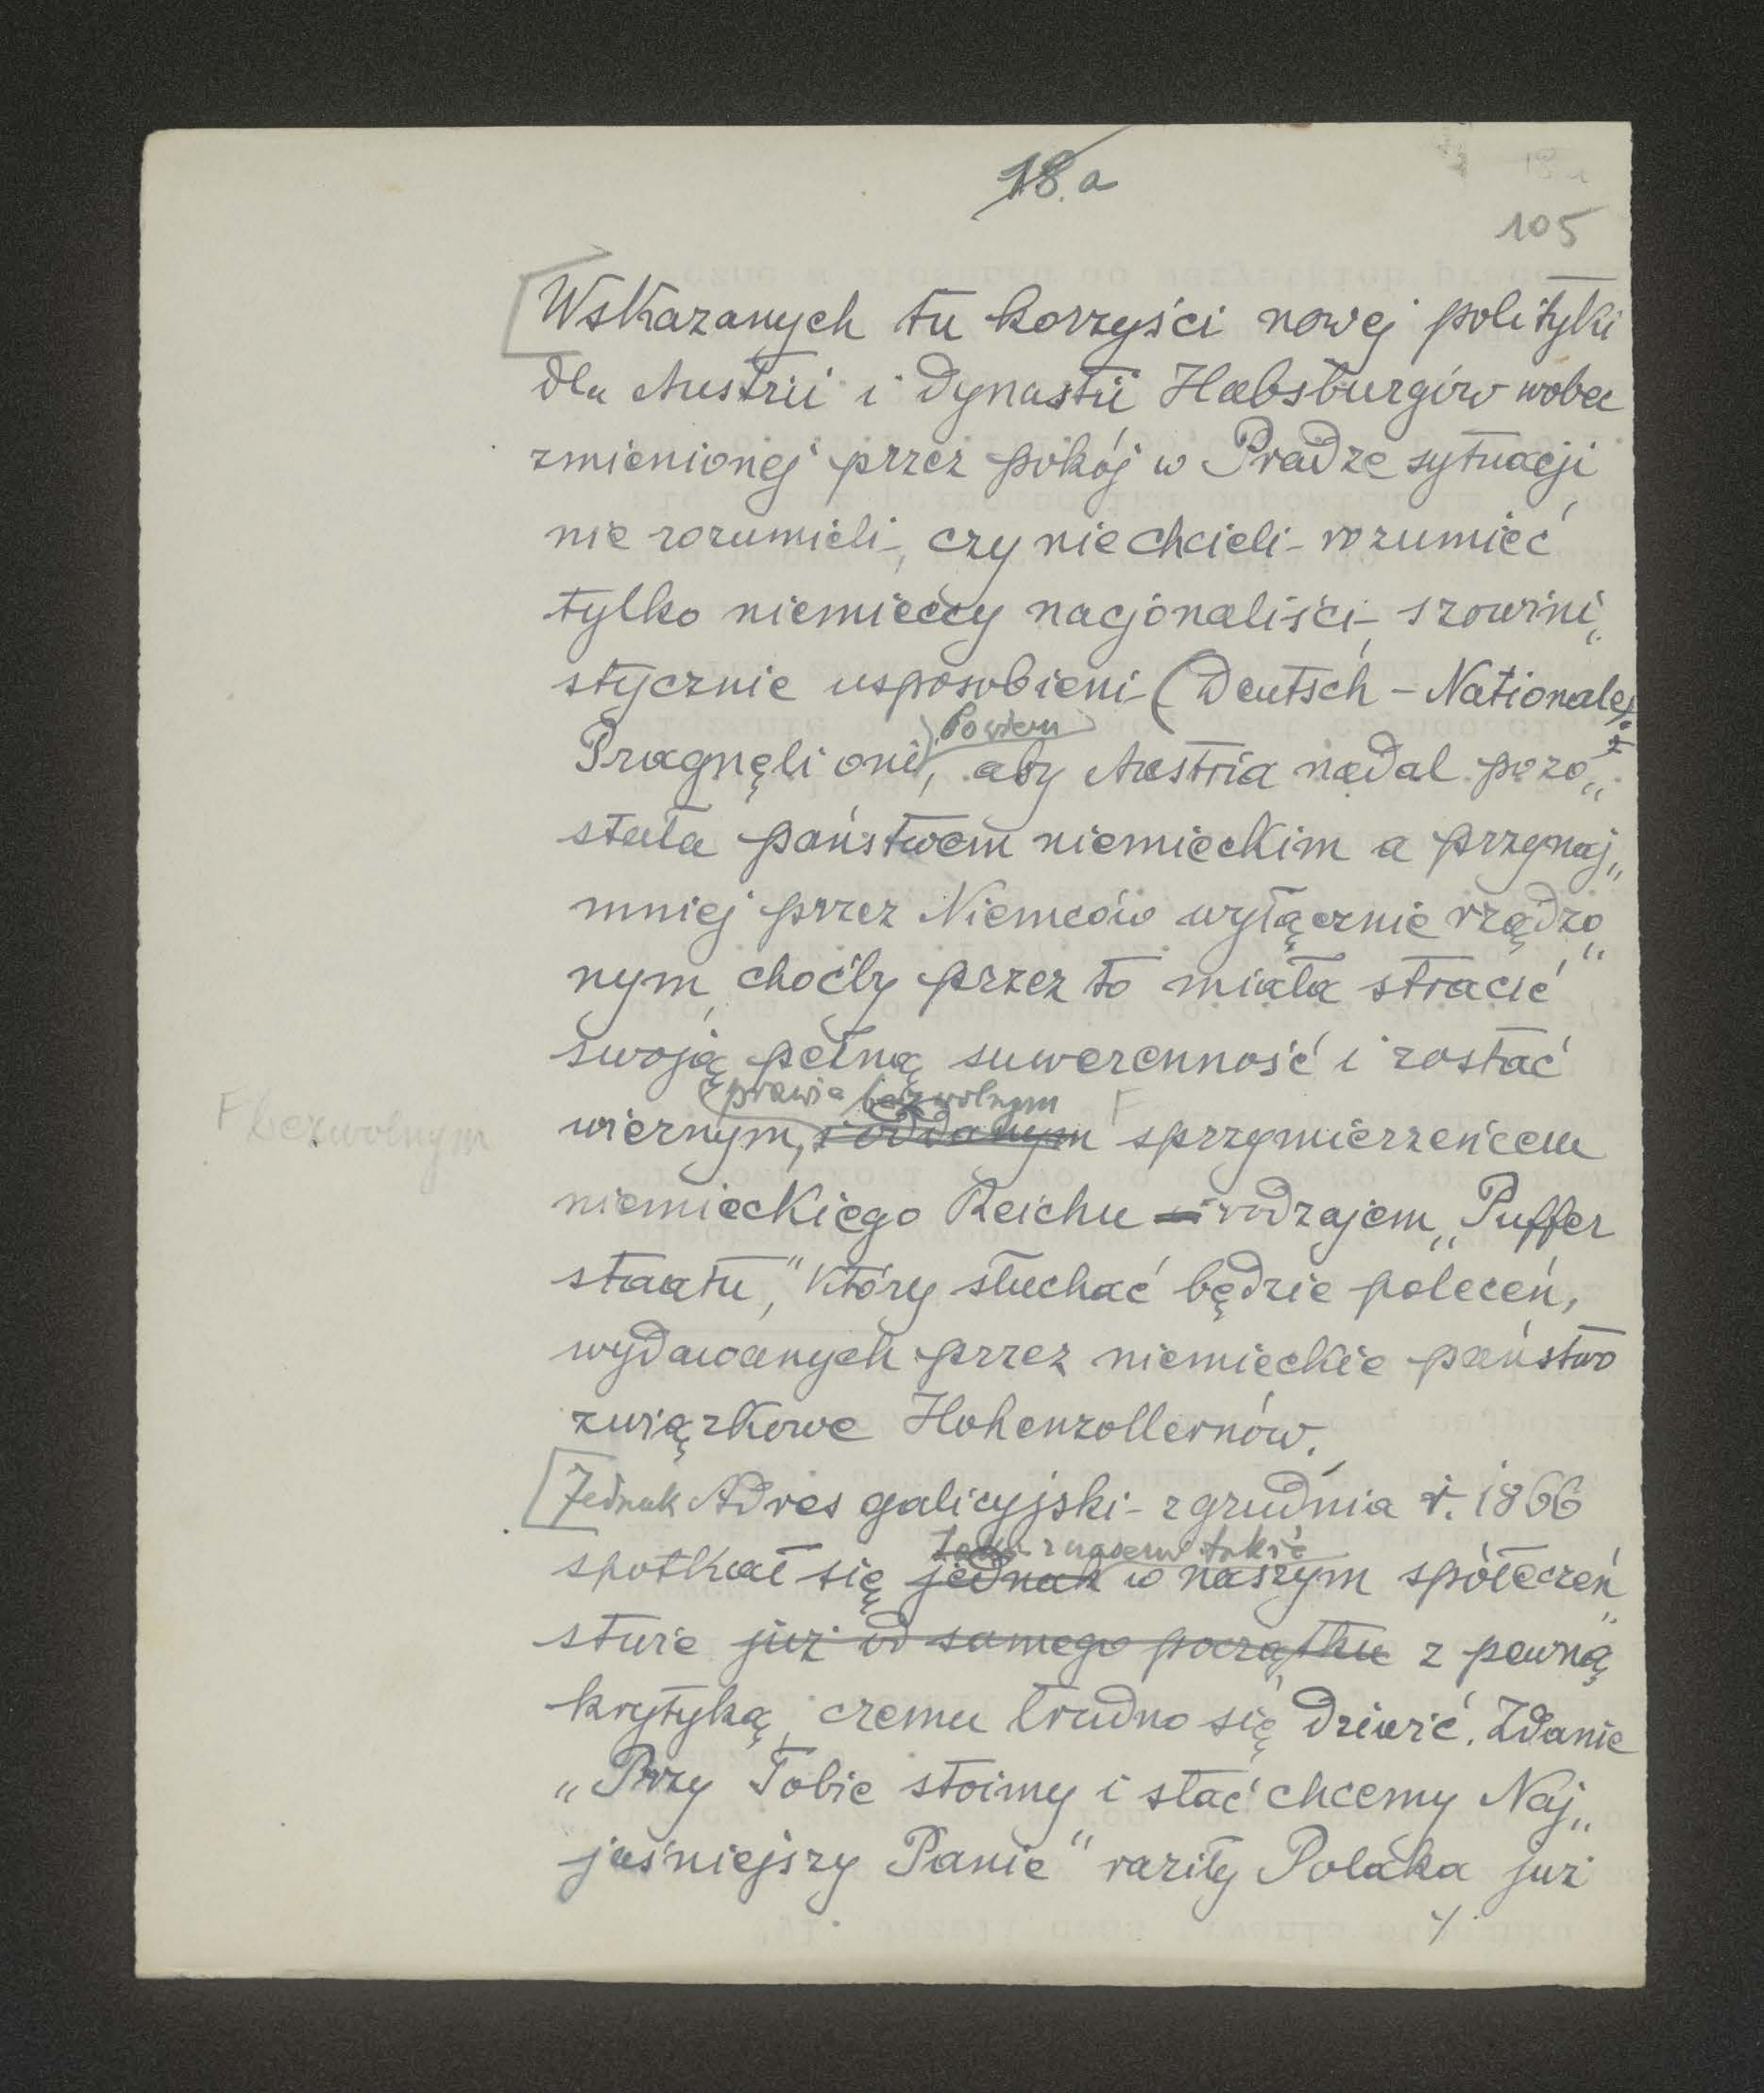 18.a
105
Wskazanych tu korzyści nowej polityki
dla Austrii i dynastii Habsburgów wobec
zmienionej przez pokój w Pradze sytuacji
nie rozumieli, czy nie chcieli rozumieć
tylko niemieccy nacjonaliści, szowini„
stycznie usposobieni (Deutsch - Nationale).
bowiem
Pragnęli oni, aby Austria nadal pozo„
stała państwem niemieckim a przynaj„
mniej przez Niemców wyłącznie rządzo„
nym, choćby przez to miała stracić
swoją pełną suwerenność i zostać
prawie bezwolnym
F bezwolnym
wiernym, i oddanym F sprzymierzeńcem
niemieckiego Reichu i rodzajem „Puffer
staatu," który słuchać będzie poleceń,
wydawanych przez niemieckie państwo
związkowe Hohenzollernów.
Jednak Adres galicyjski z grudnia r. 1866
spotkał się jednak w naszym społeczeń„
stwie już od samego początku z pewną
krytyką, czemu trudno się dziwić. Zdanie
„Przy Tobie stoimy i stać chcemy Naj„
jaśniejszy Panie" raziły Polaka już
./.